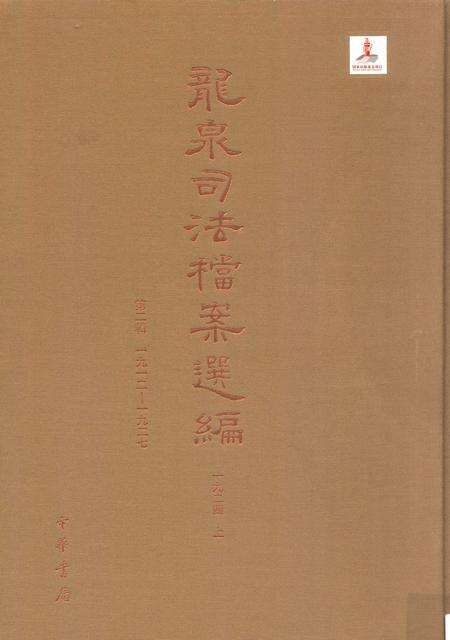 龍泉司法檔案選編
第二輯 一九一二—一九二七
一九二四 上
中華書局